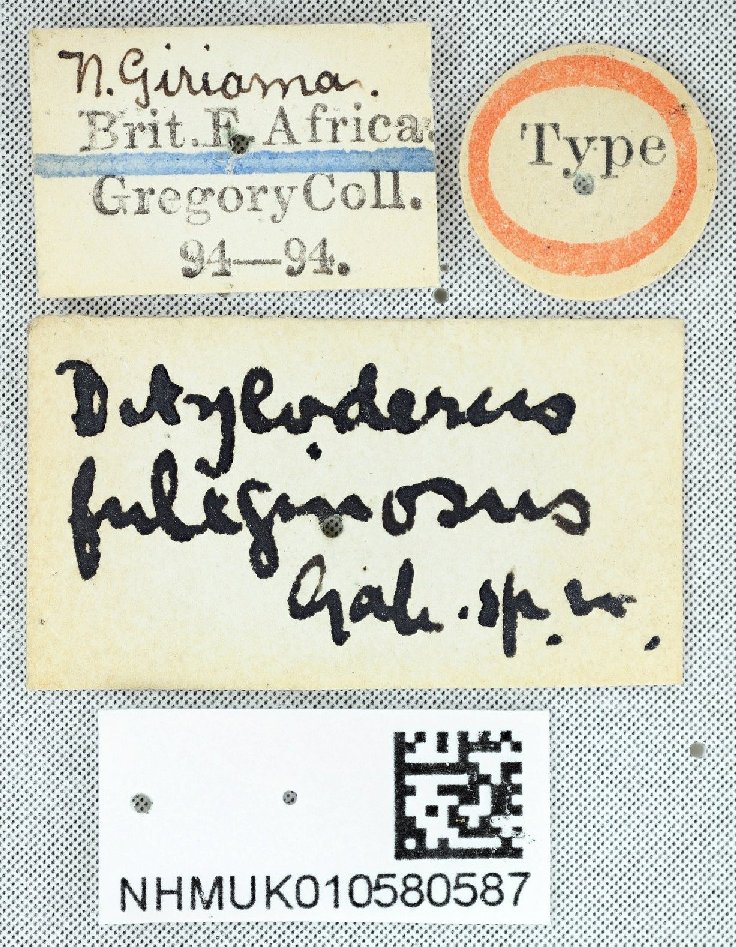 N. Giriama.
Brit. E. Africa.
Gregory Coll.
94—94.
Type
Dityloderus
fuliginosus
Gah. sp. n.
NHMUK010580587